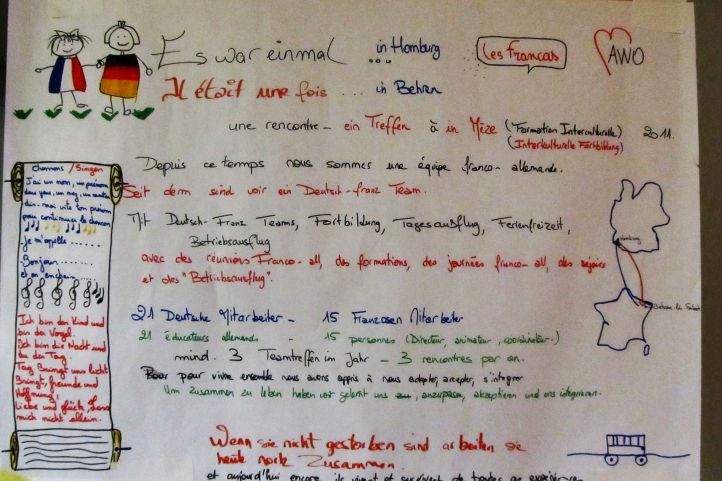 Es war einmal ... in Homburg
Les Francas
AWO
Il était une fois ... in Behren
une rencontre - ein Treffen à in Mèze (Formation Interculturelle) 2011.
(Interkulturelle Fortbildung)
Depuis ce temps nous sommes une équipe franco-allemande.
Seit dem sind voir ein Deutsch-franz Team.
Mit Deutsch-Franz Teams, Fortbildung, Tagesausflug, Ferienfreizeit,
Betriebsausflug
avec des réunions Franco-all, des formations, des journées franco-all, des sejours
et des "Betriebsausflug".
21 Deutsche Mitarbeiter - 15 Franzosen Mitarbeiter
21 éducateurs allemands - 15 personnes (Directeur, animateur, coordinateur)
mind. 3 Teamtreffen im Jahr - 3 rencontres par an.
pour vivre ensemble nous avons appris à nous adapter, accepter, s'intégrer
Um zusammen zu leben haben wir gelernt uns anzupassen, akzeptieren und uns integrieren.
Wenn sie nicht gestorben sind arbeiten sie
heute noch zusammen.
et aujourd'hui encore ils vivent et de toutes
Chansons / Singen
J'ai un nom, un prénom
deux yeux, un nez, un menton
dis-moi vite ton prénom
pour continuer la chanson
Je m'appelle ......
Bonjour ......
et on
Ich bin das Kind und
bin der Vogel.
Ich bin die Nacht und
du der Tag.
Tag Bringt uns licht
Bringt, freunde und
Hoffnung,
Liebe und glück, Lass
mich nicht allein.
Homburg
Behren